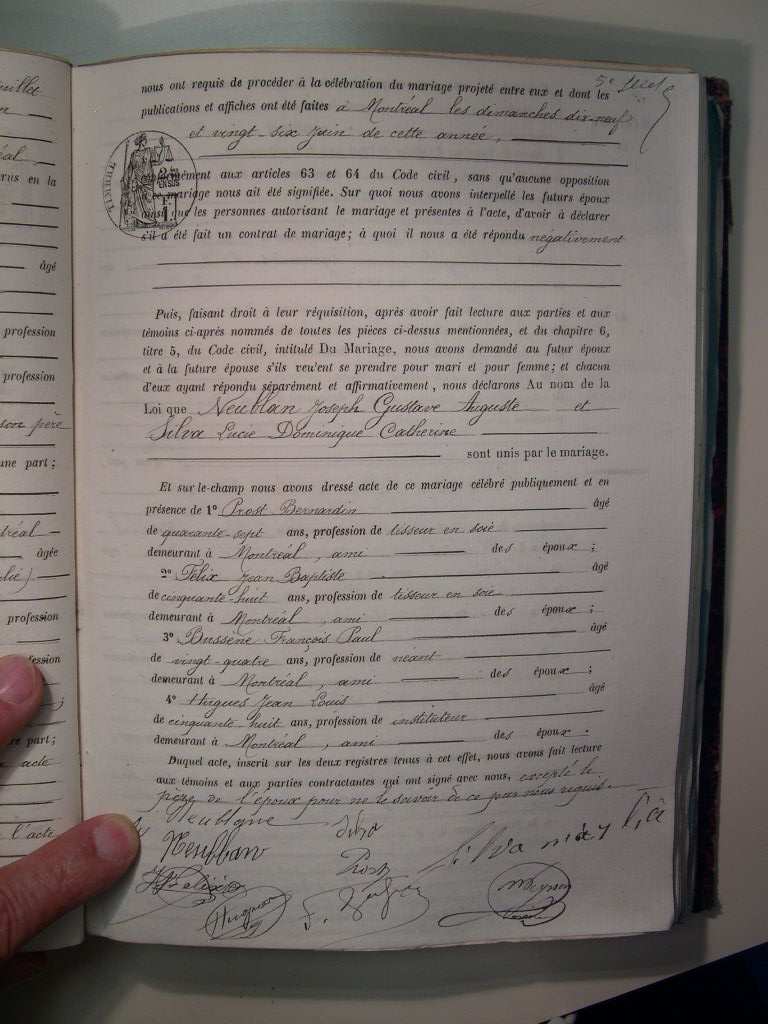 5e feuillet
nous ont requis de procéder à la célébration du mariage projeté entre eux et dont les
publications et affiches ont été faites à Montréal les dimanches dix-neuf
et vingt-six Juin de cette année,
TIMBRE
conformément aux articles 63 et 64 du Code civil, sans qu'aucune opposition
mariage nous ait été signifiée. Sur quoi nous avons interpellé les futurs époux
ainsi que les personnes autorisant le mariage et présentes à l'acte, d'avoir à déclarer
s'il a été fait un contrat de mariage; à quoi il nous a été répondu négativement
Puis, faisant droit à leur réquisition, après avoir fait lecture aux parties et aux
témoins ci-après nommés de toutes les pièces ci-dessus mentionnées, et du chapitre 6,
titre 5, du Code civil, intitulé Du Mariage, nous avons demandé au futur époux
et à la future épouse s'ils veulent se prendre pour mari et pour femme; et chacun
d'eux ayant répondu séparément et affirmativement, nous déclarons Au nom de la
Loi que Neublan Joseph Gustave Auguste et
Silva Lucie Dominique Catherine
sont unis par le mariage.
Et sur-le-champ nous avons dressé acte de ce mariage célébré publiquement et en
présence de 1° Prost Bernardin âgé
de quarante-sept ans, profession de tisseur en soie
demeurant à Montréal, ami des époux;
2° Félix Jean Baptiste âgé
de cinquante-huit ans, profession de tisseur en soie
demeurant à Montréal, ami des époux;
3° Busserie François Paul âgé
de vingt-quatre ans, profession de néant
demeurant à Montréal, ami des époux;
4° Hugues Jean Louis âgé
de cinquante huit ans, profession de instituteur
demeurant à Montréal, ami des époux.
Duquel acte, inscrit sur les deux registres tenus à cet effet, nous avons fait lecture
aux témoins et aux parties contractantes qui ont signé avec nous, excepté le
père de l'époux pour ne le savoir de ce par nous requis.
Neublan
Silva
Prost
profession
profession
son père
une part;
âgé
âgée
profession
part;
acte
l'acte